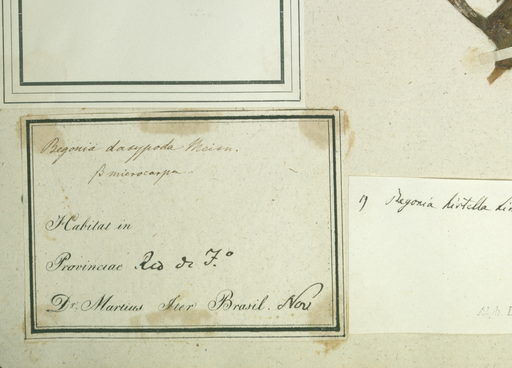 Begonia dasypoda Meisn.
β microcarpa
Habitat in
Provinciae Rio de J.º
Dr. Martius Iter Brasil. Nov
1) Begonia hirtella